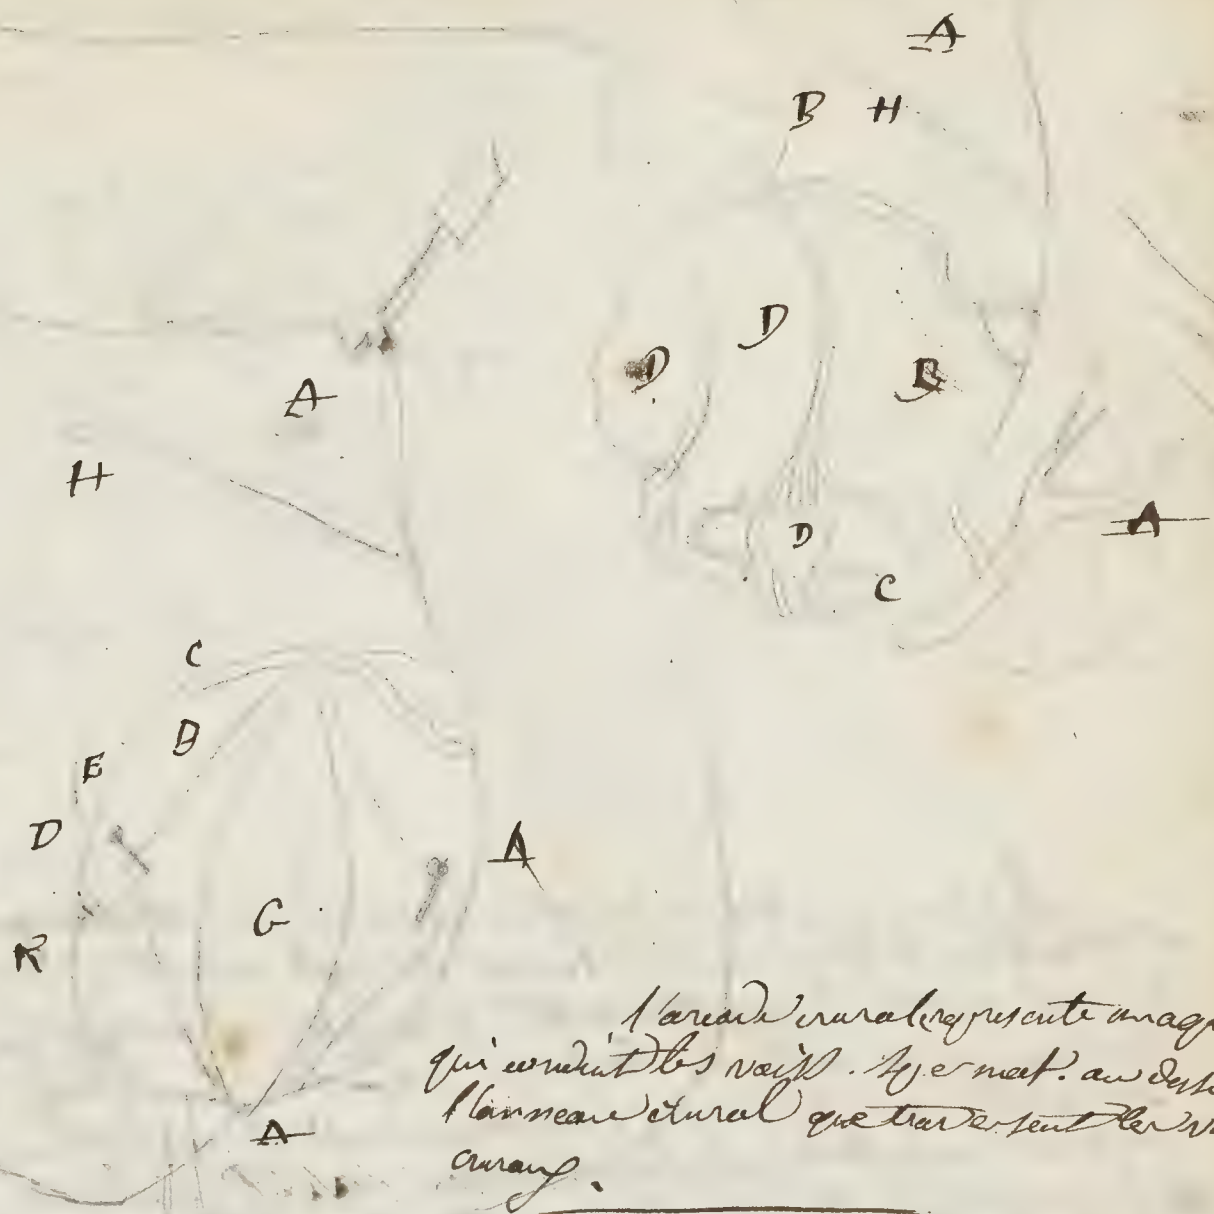 A
B H
D
D
B
A
H
D
A
C
C
B
E
D
A
G
R
l'arcade crurale represente un
qui conduit les vaiss. spermat. au
l'anneau crural que traversent les
cruraux.
A